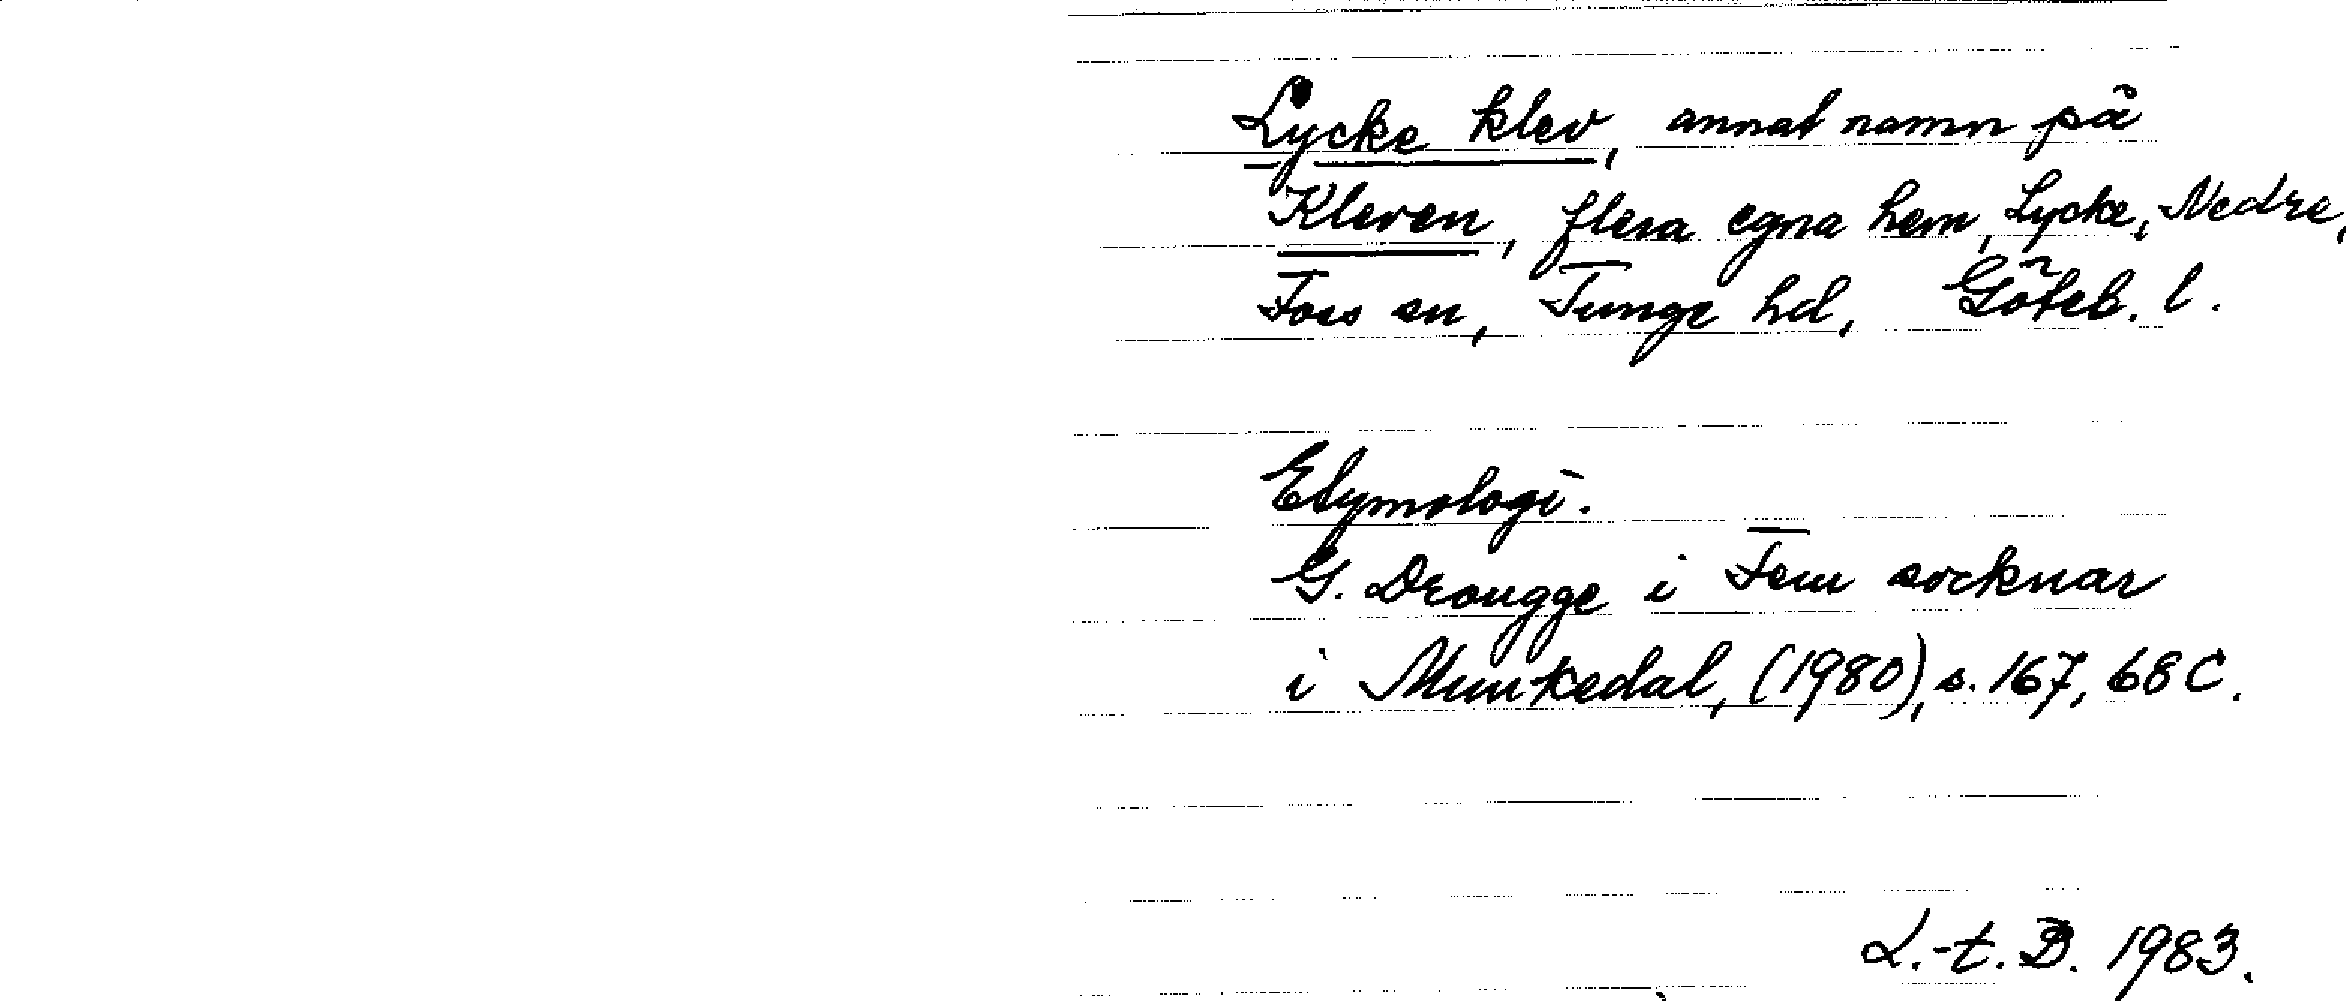 Lycke klev, annat namn på
Kleven, flera egna hem, Lycke, Nedre,
Foss sn, Tunge hd, Göteb. l.
Etymologi.
G. Drougge i Fem socknar
i Munkedal, (1980), s. 167, 68 C.
L.-t. B. 1983.